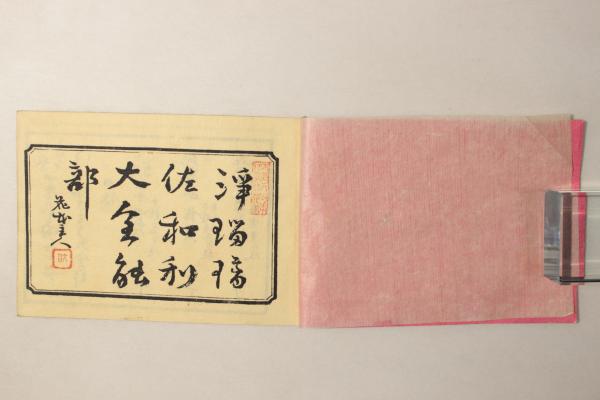 浄瑠璃
佐和利
大全能
部